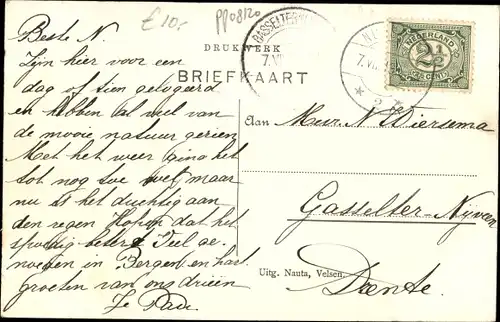 £10,-
pp08/20
Beste N.
Zijn hier voor een
dag of tien gelogeerd
en hebben al veel van
de mooie natuur gezien.
Met het weer ging het
tot nog toe wel maar
nu is het duchtig aan
den regen. Hopop dat het
spoedig betert. Veel ge-
noegen in Bergen en hart.
groeten van ons drieën
DRUKWERK
BRIEFKAART
NEDERLAND
2½
CENT
Aan
Mevr. N. Wiersema
Gasselter-Nijveen
Drente.
Uitg. Nauta, Velsen.